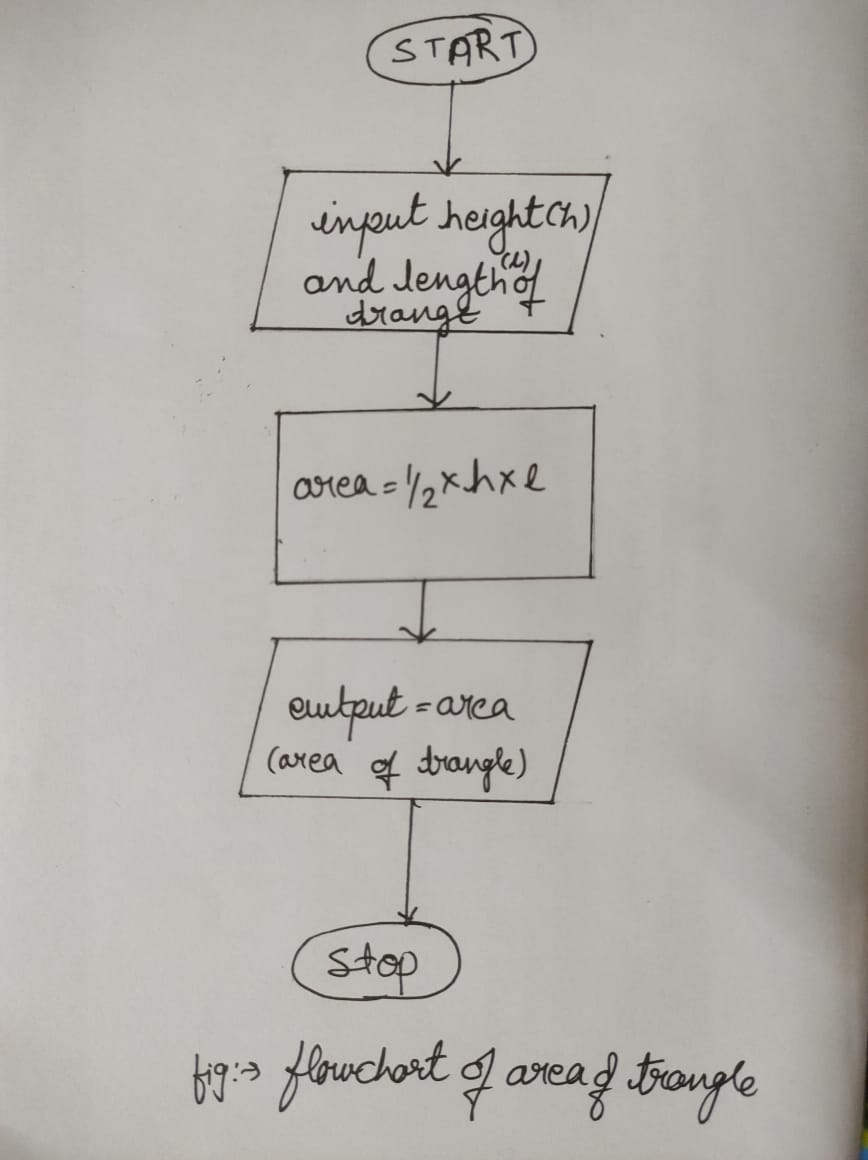 START
input height(h)
and length(l) of
trange
area = 1/2 x h x l
output = area
(area of trangle)
Stop
fig:→ flowchart of area of trangle